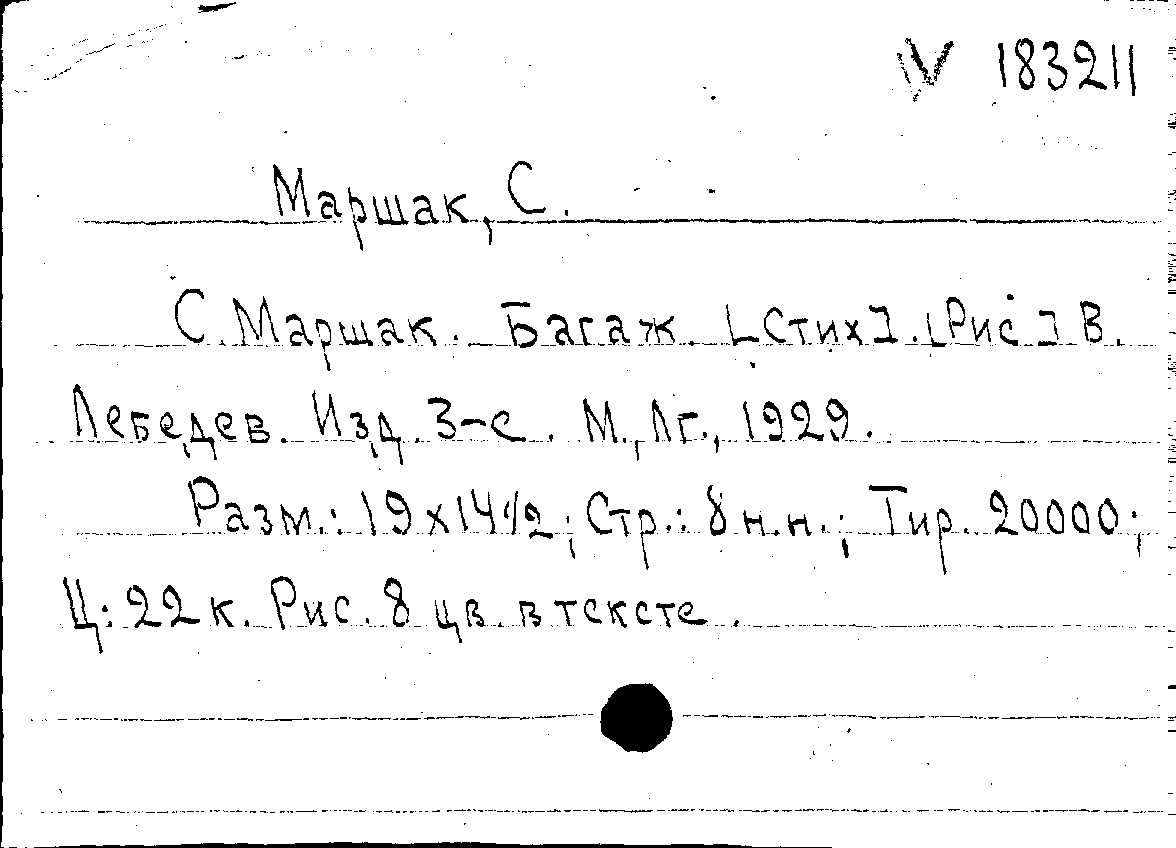 V 183211
Маршак, С.
С. Маршак. Багаж. [Стих]. [Рис.] В.
Лебедев. Изд. 3-е. М., Лг., 1929.
Разм.: 19х14 1/2; Стр.: 8 н.н.; Тир. 20000;
Ц: 22 к. Рис. 8 цв. в тексте.